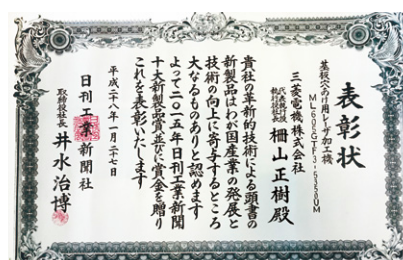 表彰状
基板穴あけ用レーザ加工機
ML605GTF3-5350UM
三菱電機株式会社
代表執行役
執行役社長
柵山正樹殿
貴社の革新的技術による頭書の
新製品はわが国産業の発展と
技術の向上に寄与するところ
大なるものありと認めます
よって二〇一五年日刊工業新聞
十大新製品賞並びに賞金を贈り
これを表彰いたします
平成二十八年一月二十七日
日刊工業新聞社
取締役社長 井水治博